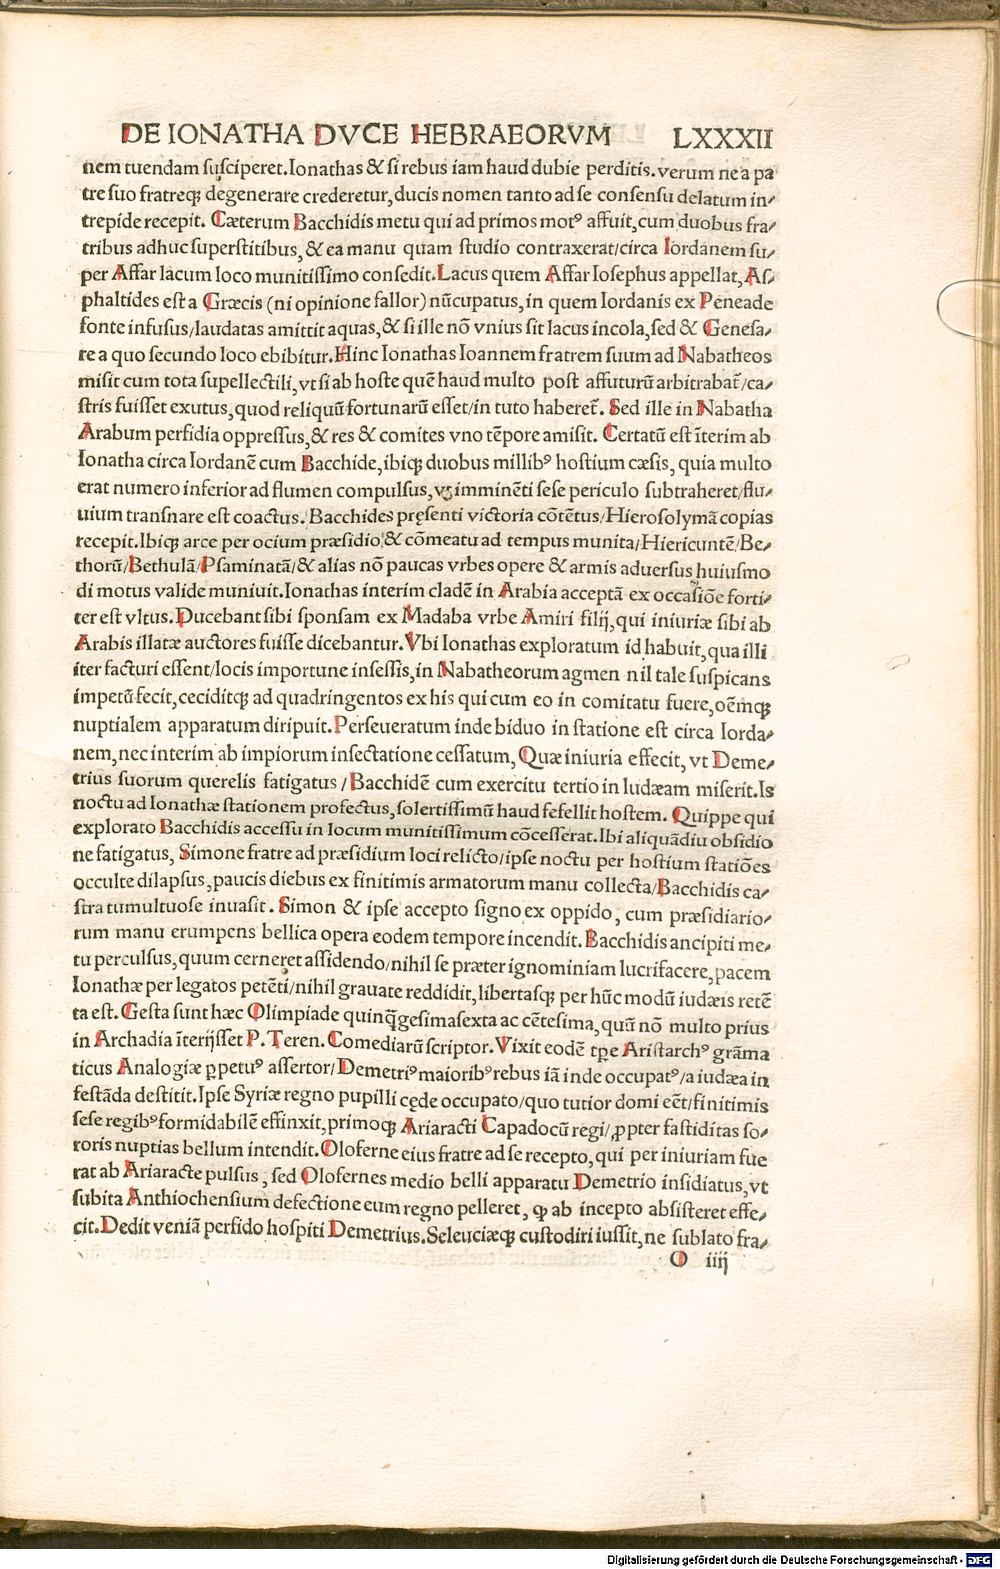 DE IONATHA DVCE HEBRAEORVM LXXXII
nem tuendam susciperet. Ionathas & si rebus iam haud dubie perditis. verum ne a pa
tre suo fratreqꝫ degenerare crederetur, ducis nomen tanto ad se consensu delatum in⸗
trepide recepit. Cæterum Bacchidis metu qui ad primos motꝰ affuit, cum duobus fra⸗
tribus adhuc superstitibus, & ea manu quam studio contraxerat/circa Iordanem su⸗
per Asfar lacum loco munitissimo consedit. Lacus quem Asfar Iosephus appellat, As⸗
phaltides est a Græcis (ni opinione fallor) nūcupatus, in quem Iordanis ex Peneade
fonte infusus/laudatas amittit aquas, & si ille nō vnius sit lacus incola, sed & Genesa⸗
re a quo secundo loco ebibitur. Hinc Ionathas Ioannem fratrem suum ad Nabatheos
misit cum tota supellectili, vt si ab hoste quē haud multo post affuturū arbitrabat᷑/ca⸗
stris fuisset exutus, quod reliquū fortunarū esset/in tuto haberet᷑. Sed ille in Nabatha
Arabum perfidia oppressus, & res & comites vno tēpore amisit. Certatū est īterim ab
Ionatha circa Iordanē cum Bacchide, ibiqꝫ duobus millibꝰ hostium cæsis, quia multo
erat numero inferior ad flumen compulsus, vꝫ imminēti sese periculo subtraheret/flu⸗
uium transnare est coactus. Bacchides pręsenti victoria cōtētus/Hierosolymā copias
recepit. Ibiqꝫ arce per ocium præsidio, & cōmeatu ad tempus munita/Hiericuntē/Be⸗
thorū/Bethulā/Psaminatā/& alias nō paucas vrbes opere & armis aduersus huiusmo
di motus valide muniuit. Ionathas interim cladē in Arabia acceptā ex occasiōe forti⸗
ter est vltus. Ducebant sibi sponsam ex Madaba vrbe Amiri filij, qui iniuriæ sibi ab
Arabis illatæ auctores fuisse dicebantur. Vbi Ionathas exploratum id habuit, qua illi
iter facturi essent/locis importune insessis, in Nabatheorum agmen nil tale suspicans
impetū fecit, ceciditqꝫ ad quadringentos ex his qui cum eo in comitatu fuere, oēmqꝫ
nuptialem apparatum diripuit. Perseueratum inde biduo in statione est circa Iorda⸗
nem, nec interim ab impiorum insectatione cessatum, Quæ iniuria effecit, vt Deme⸗
trius suorum querelis fatigatus / Bacchidē cum exercitu tertio in Iudæam miserit. Is
noctu ad Ionathæ stationem profectus, solertissimū haud fefellit hostem. Quippe qui
explorato Bacchidis accessu in locum munitissimum cōcesserat. Ibi aliquādiu obsidio
ne fatigatus, Simone fratre ad præsidium loci relicto/ipse noctu per hostium statiōes
occulte dilapsus, paucis diebus ex finitimis armatorum manu collecta/Bacchidis ca⸗
stra tumultuose inuasit. Simon & ipse accepto signo ex oppido, cum præsidiario⸗
rum manu erumpens bellica opera eodem tempore incendit. Bacchidis ancipiti me⸗
tu perculsus, quum cerneret assidendo/nihil se præter ignominiam lucrifacere, pacem
Ionathæ per legatos petēti/nihil grauate reddidit, libertasqꝫ per hūc modū iudæis retē
ta est. Gesta sunt hæc Olimpiade quinq̄gesimasexta ac cētesima, quā nō multo prius
in Archadia īterijsset P. Teren. Comediarū scriptor. Vixit eodē tꝑe Aristarchꝰ grāma
ticus Analogiæ ꝑpetuꝰ assertor/Demetriꝰ maioribꝰ rebus iā inde occupatꝰ/a iudæa in
festāda destitit. Ipse Syriæ regno pupilli cęde occupato/quo tutior domi eēt/finitimis
sese regibꝰ formidabilē effinxit, primoqꝫ Ariaracti Capadocū regi/ꝓpter fastiditas so⸗
roris nuptias bellum intendit. Oloferne eius fratre ad se recepto, qui per iniuriam fue
rat ab Ariaracte pulsus, sed Olofernes medio belli apparatu Demetrio insidiatus, vt
subita Anthiochensium defectione eum regno pelleret, ꝙ ab incepto absisteret effe⸗
cit. Dedit veniā perfido hospiti Demetrius. Seleuciæqꝫ custodiri iussit, ne sublato fra⸗
O iiij
Digitalisierung gefördert durch die Deutsche Forschungsgemeinschaft - DFG